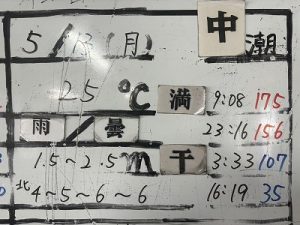 5/13(月) 中潮
25℃ 満 9:08 175
雨/曇 23:16 156
1.5~2.5m 干 3:33 107
北4~5~6~6 16:19 35